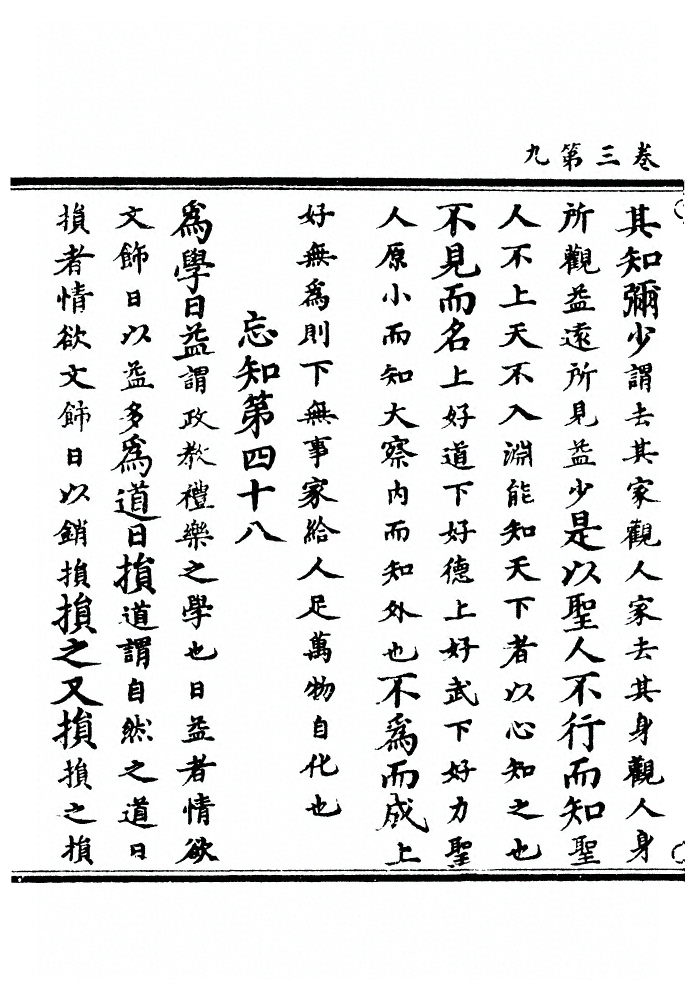 卷三第九
其知彌少謂去其家觀人家去其身觀人身
所觀益遠所見益少是以聖人不行而知聖
人不上天不入淵能知天下者以心知之也
不見而名上好道下好德上好武下好力聖
人原小而知大察内而知外也不為而成上
好無為則下無事家給人足萬物自化也
忘知第四十八
為學日益謂政教禮樂之學也日益者情欲
文飾日以益多為道日損道謂自然之道日
損者情欲文飾日以銷損損之又損損之損